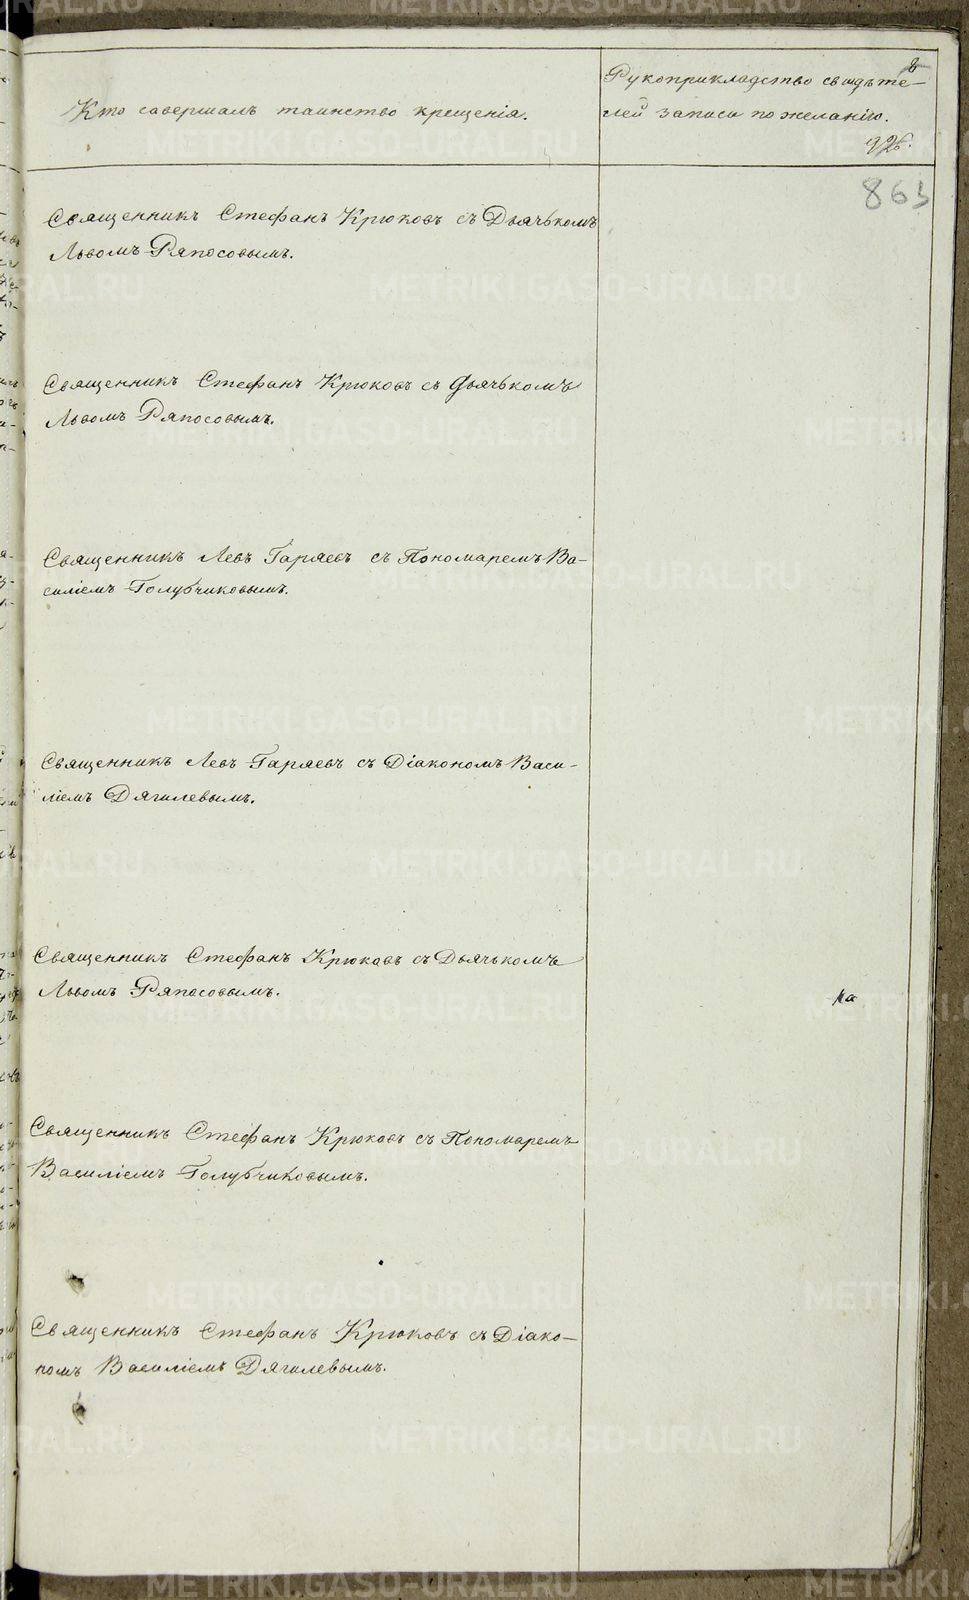 8
Кто совершалъ таинство крещенія.
Рукоприкладство свидѣте-
лей записи по желанію.
926.
863
Священникъ Стефанъ Крюковъ съ Дьячькомъ
Львомъ Ряпосовымъ.
Священникъ Стефанъ Крюковъ съ Дьячькомъ
Львомъ Ряпосовымъ.
Священникъ Левъ Гаряевъ съ Пономаремъ Ва-
силіемъ Голубчиковымъ.
Священникъ Левъ Гаряевъ съ Діакономъ Васи-
ліемъ Дягилевымъ.
Священникъ Стефанъ Крюковъ съ Дьячькомъ
Львомъ Ряпосовымъ.
ка
Священникъ Стефанъ Крюковъ съ Пономаремъ
Василіемъ Голубчиковымъ.
Священникъ Стефанъ Крюковъ съ Діако-
номъ Василіемъ Дягилевымъ.
METRIKI.GASO-URAL.RU